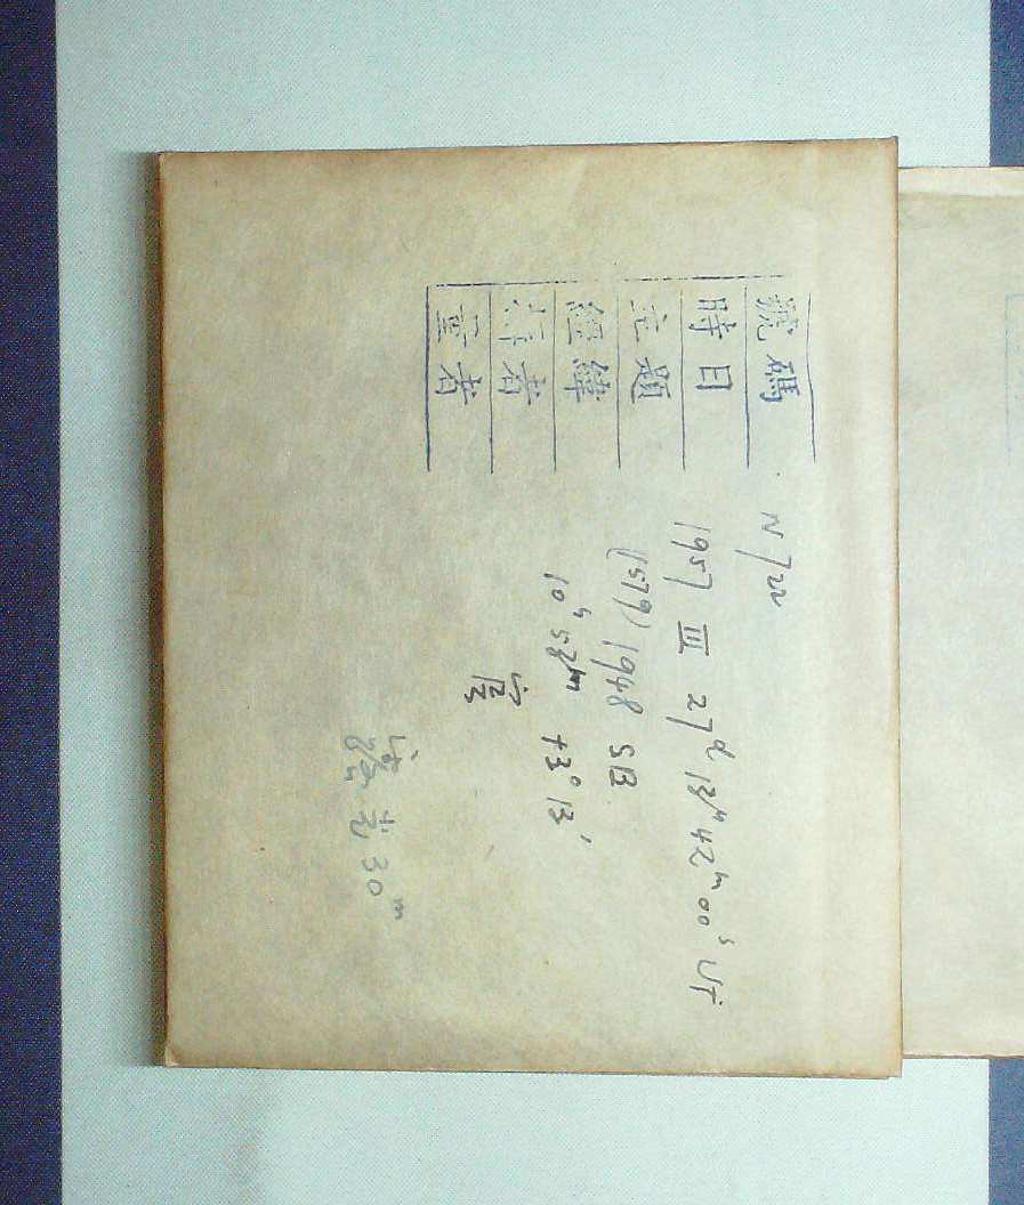 號碼 N 722
時日 1957 III 27d 13h 42m 00s UT
主題 (1579) 1948 SB
經緯 10h 53m +3° 13'
者
者
露光 30m